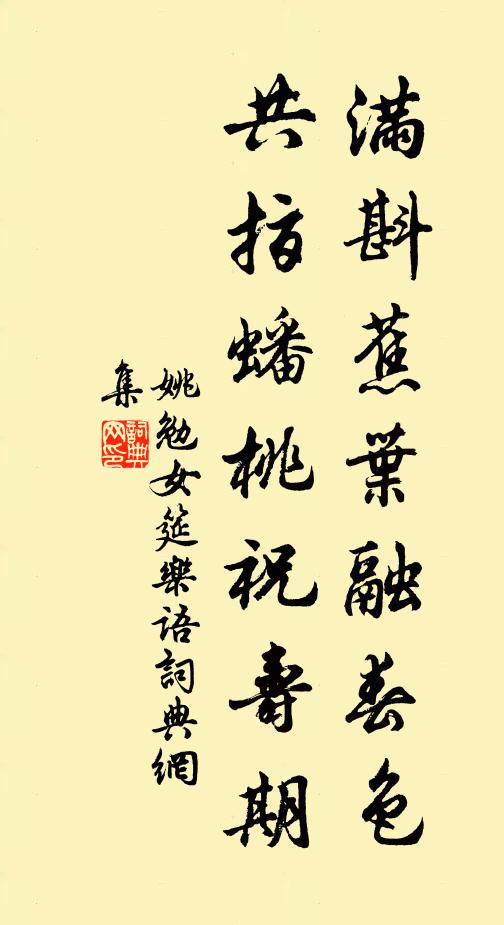 滿斟蕉葉融春色
共指蟠桃祝壽期
姚勉女筵樂语詞典網
集
詞典
网印